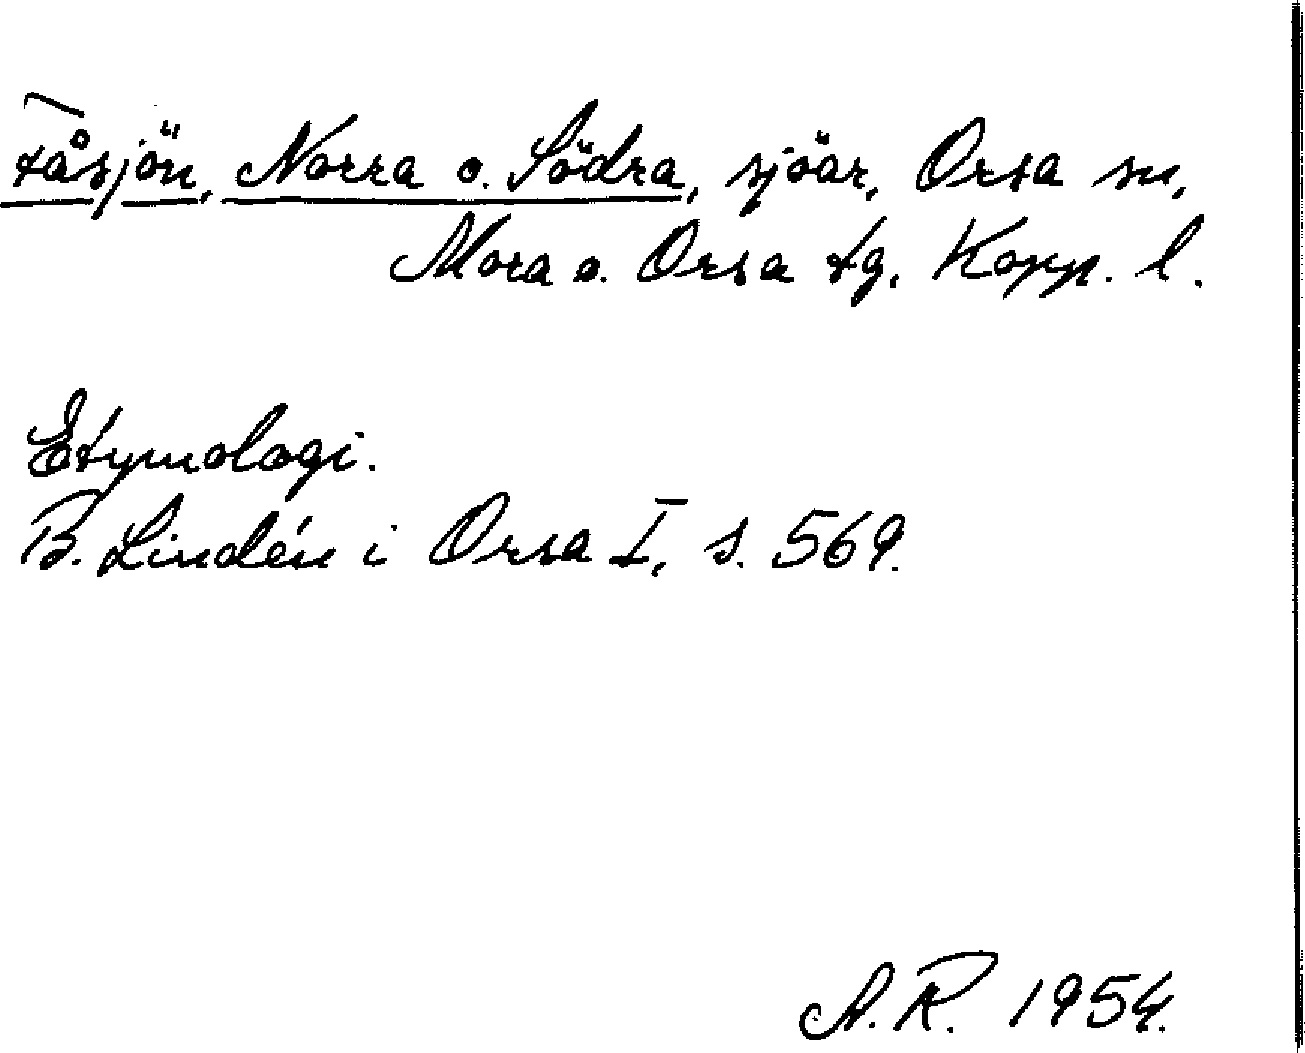 Fåsjön, Norra o. Södra, sjöar, Orsa sn,
Mora o. Orsa tg. Kopp. l.
Etymologi.
B. Lindén i Orsa I, s. 569.
A. R. 1954.